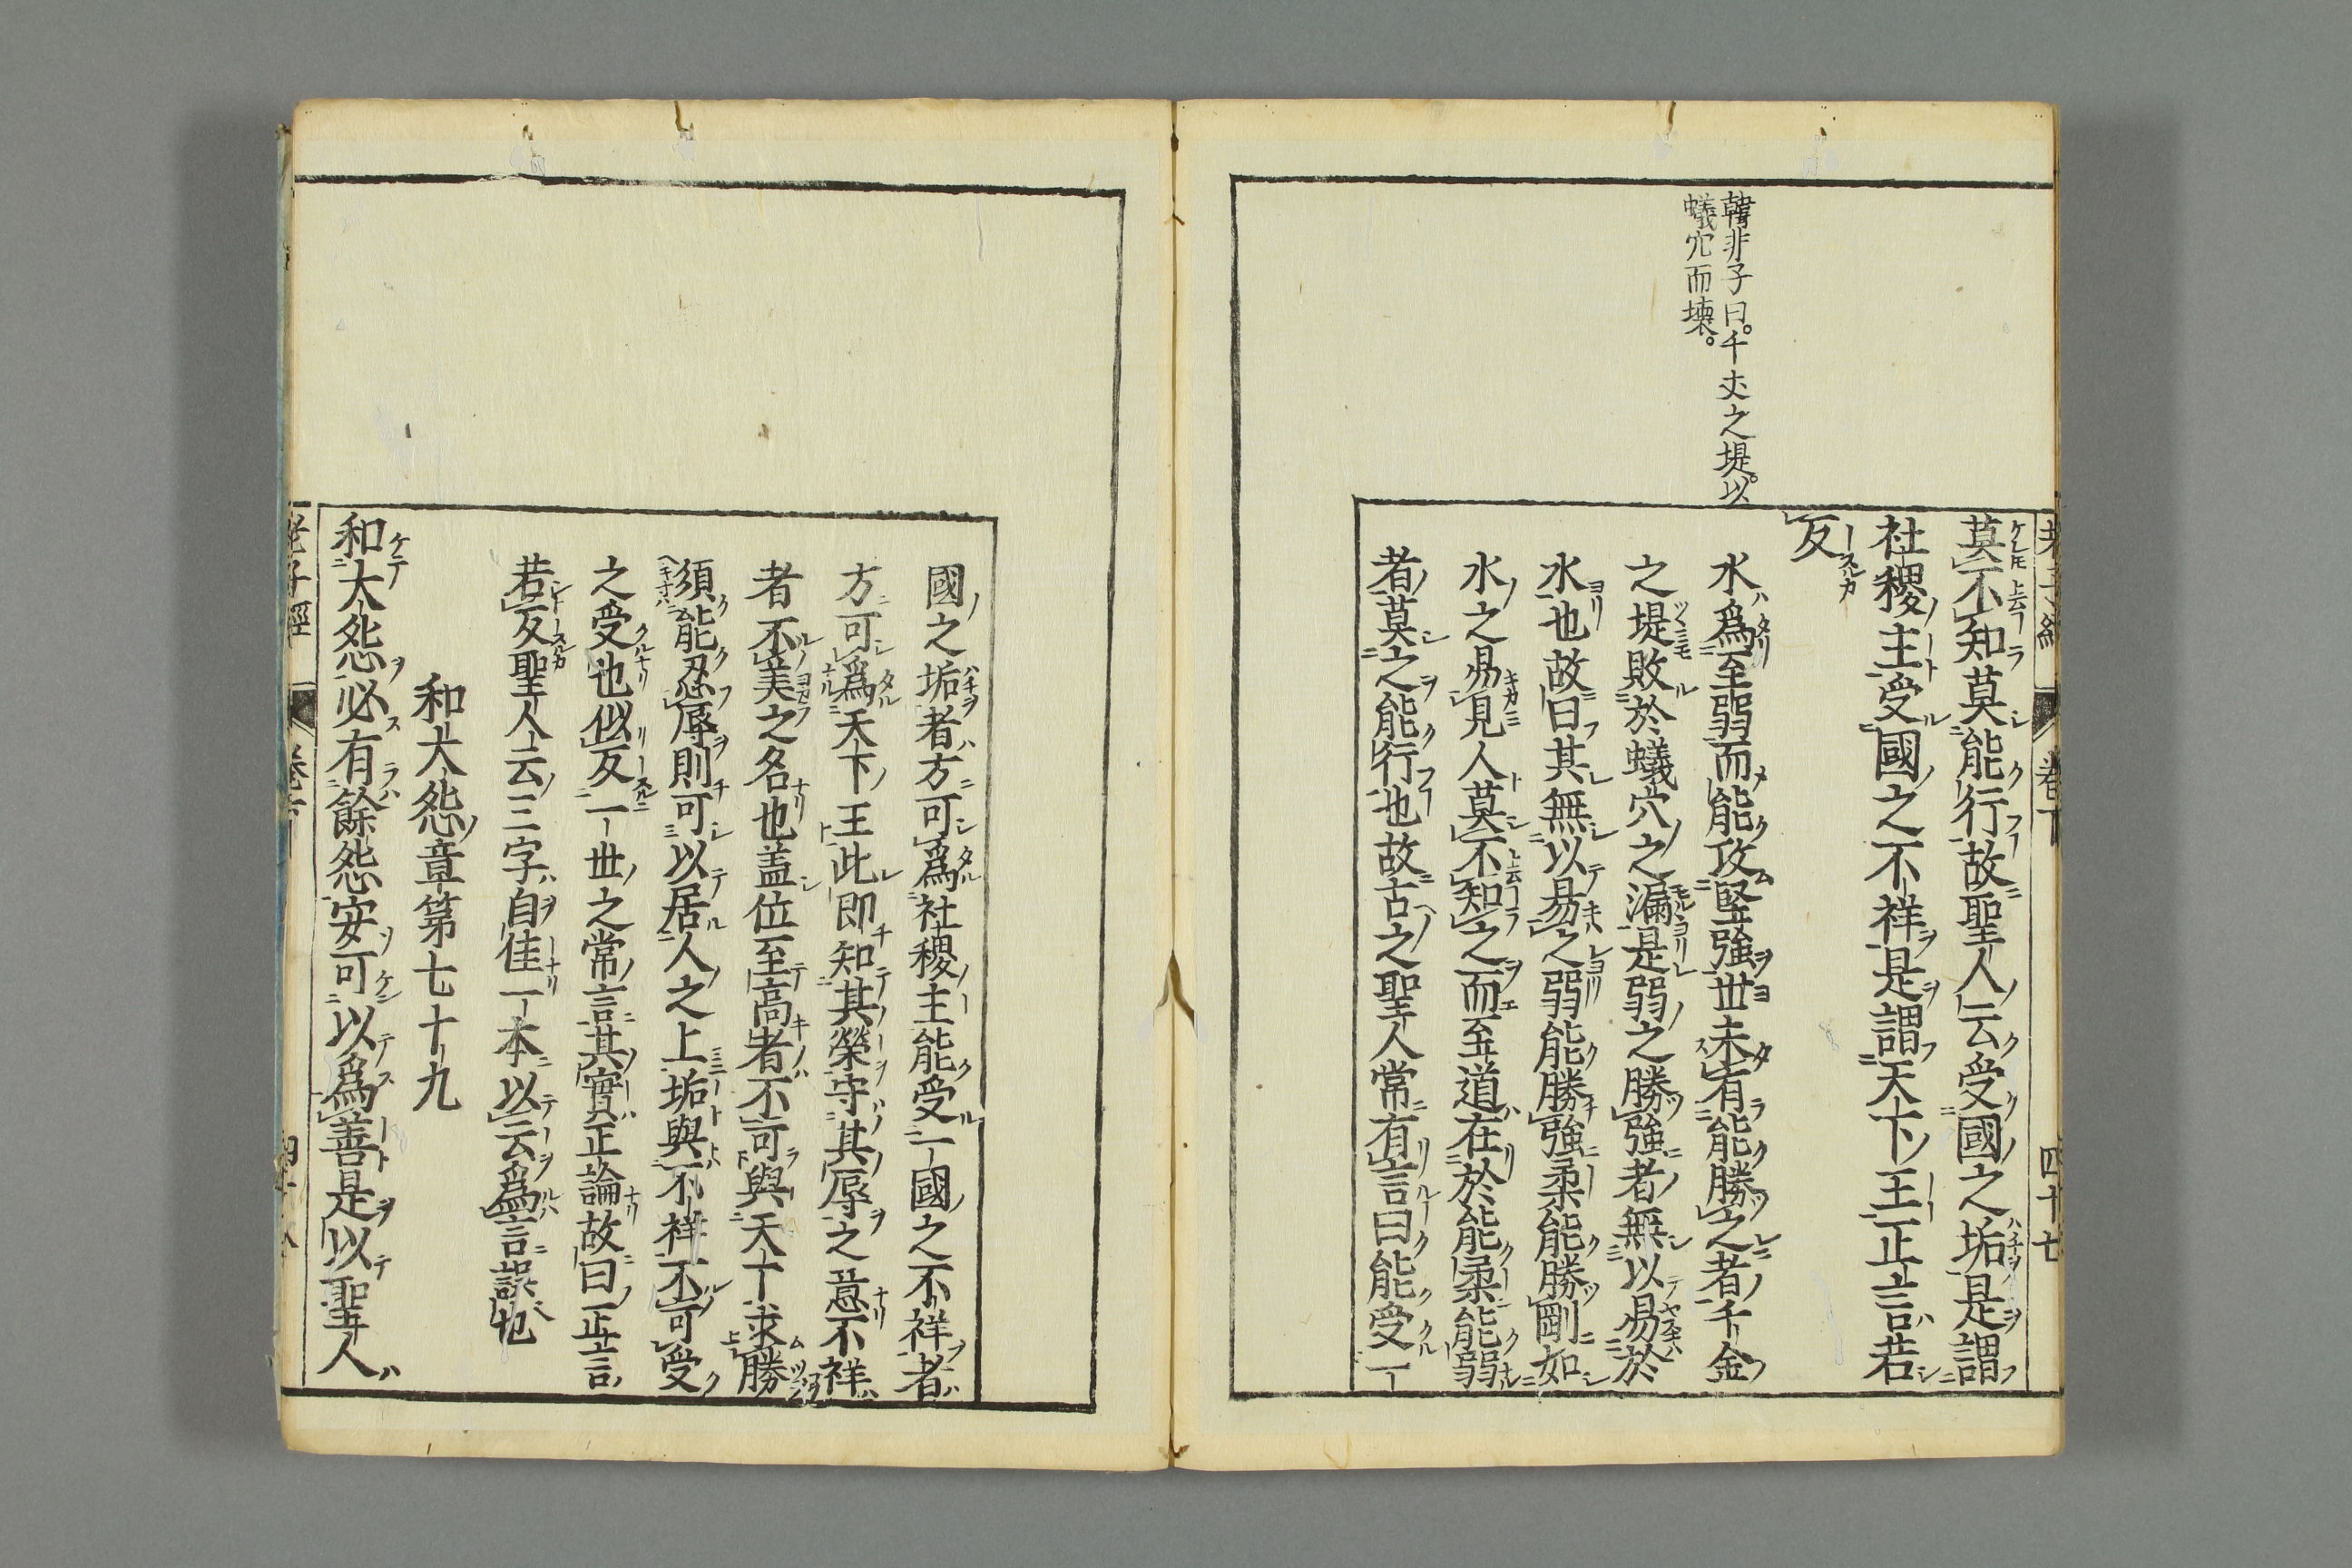 老子經 卷下 四十七
莫不知莫能行故聖人云受國之垢是謂
社稷主受國之不祥是謂天下王正言若
反
韓非子曰。千丈之堤。以
蟻穴而壊。
水爲至弱而能攻堅強世未有能勝之者千金
之堤敗於蟻穴之漏是弱之勝強者無以易於
水也故曰其無以易之弱能勝強柔能勝剛如
水之易見人莫不知之而至道在於能柔能弱
者莫之能行也故古之聖人常有言曰能受一
國之垢者方可爲社稷主能受一國之不祥者
方可爲天下王此即知其榮守其辱之意不祥
者不美之名也盖位至高者不可與天下求勝
須能忍辱則可以居人之上垢與不祥不可受
之受也似反一世之常言其實正論故曰正言
若反聖人云三字自佳一本以云爲言誤也
和大怨章第七十九
和大怨必有餘怨安可以爲善是以聖人
老子經 卷下